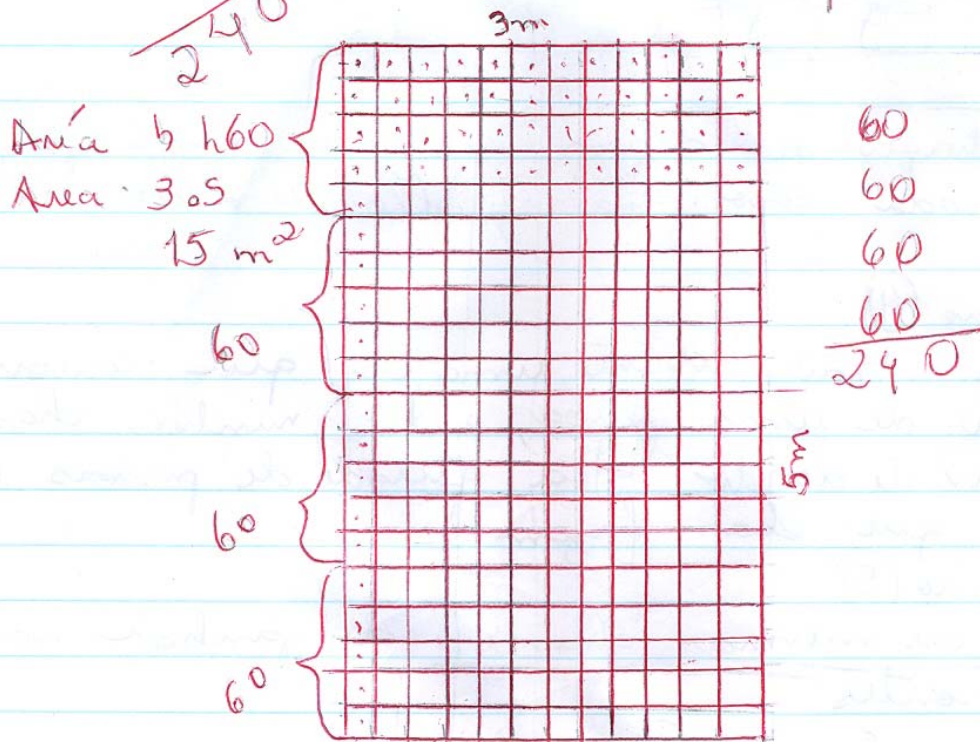 240
3m
Aría b h60
Area 3.5
15 m²
60
60
60
60
60
60
60
240
5m